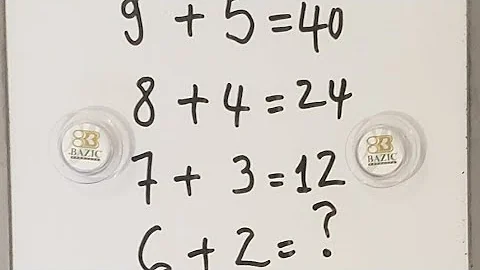 9 + 5 = 40
8 + 4 = 24
BAZIC
BAZIC
7 + 3 = 12
6 + 2 = ?